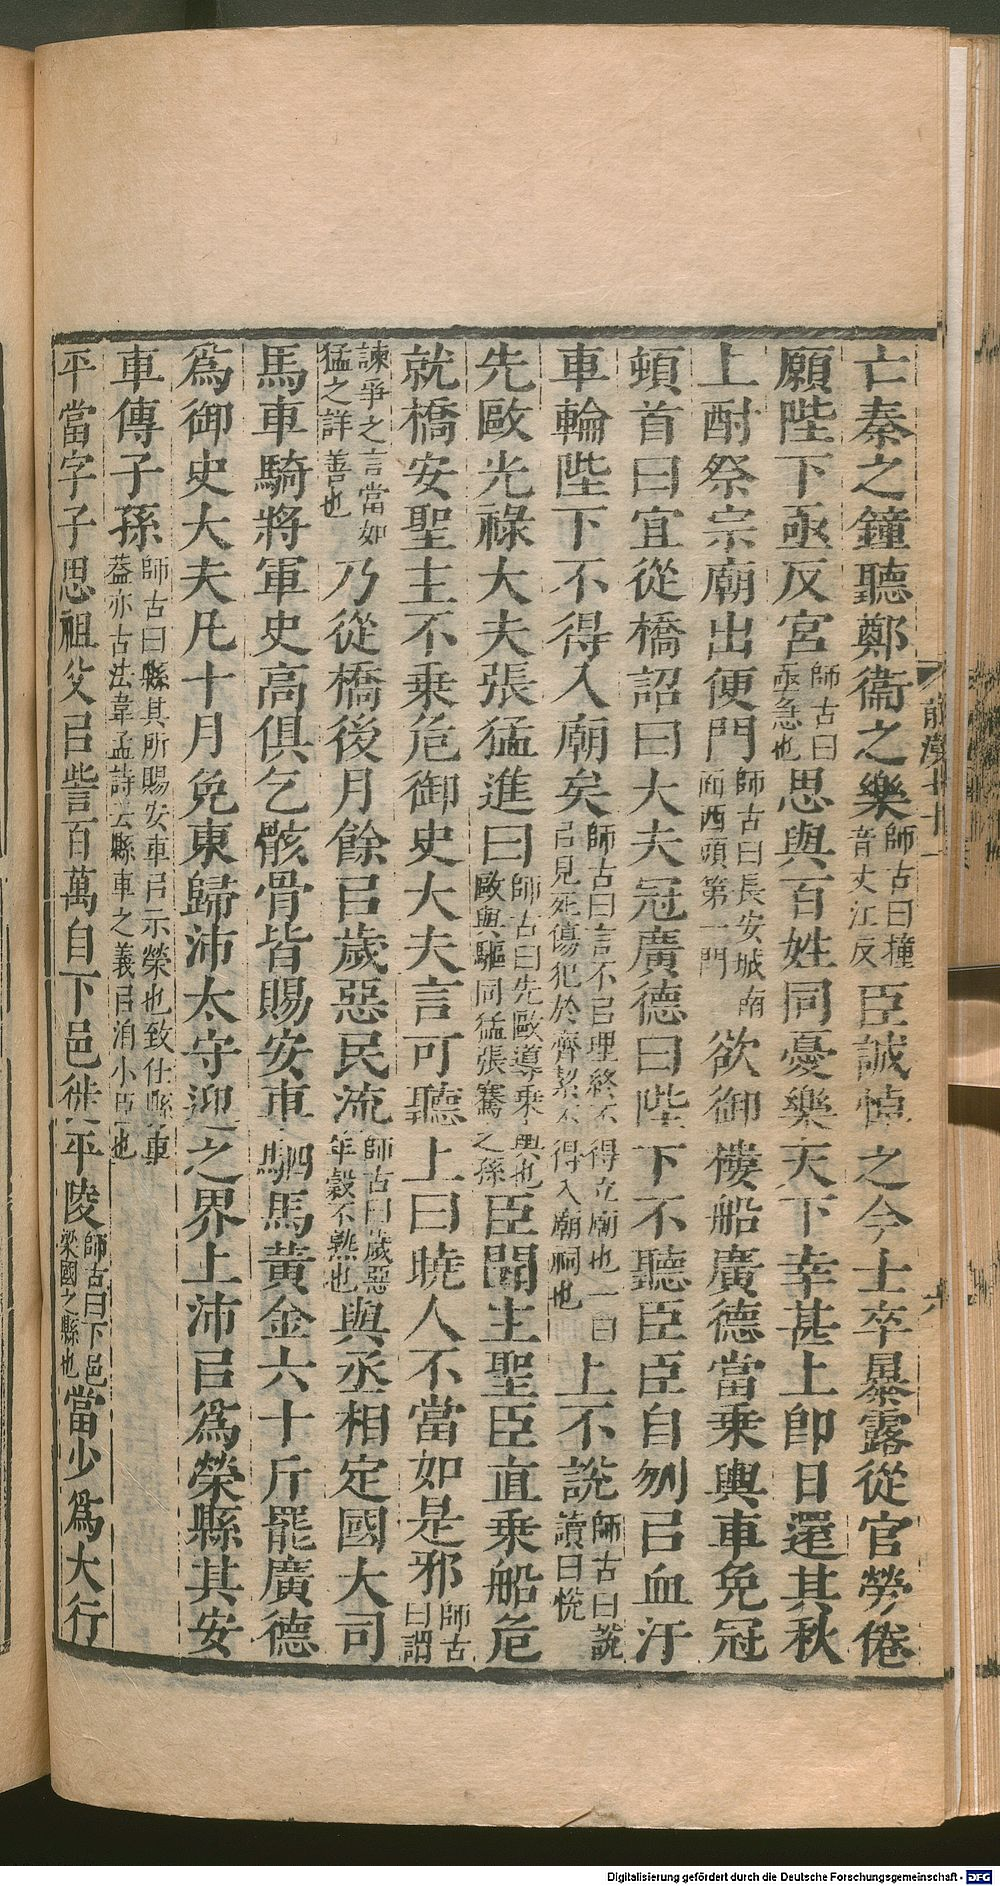 亡秦之鐘聽鄭衞之樂師古曰撞音丈江反臣誠悼之今士卒暴露從官勞倦
願陛下亟反宮師古曰亟急也思與百姓同憂樂天下幸甚上卽日還其秋
上酎祭宗廟出便門師古曰長安城南面西頭第一門欲御樓船廣德當乘輿車免冠
頓首曰宜從橋詔曰大夫冠廣德曰陛下不聽臣臣自刎㠯血汙
車輪陛下不得入廟矣師古曰言不㠯理終不得立廟也一曰㠯見死傷犯於齊絜不得入廟祠也上不說師古曰說讀曰悅
先敺光祿大夫張猛進曰師古曰先敺導乘輿也敺與驅同猛張騫之孫臣聞主聖臣直乘船危
就橋安聖主不乘危御史大夫言可聽上曰曉人不當如是邪師古曰謂
諫爭之言當如猛之詳善也乃從橋後月餘㠯歲惡民流師古曰歲惡年穀不熟也與丞相定國大司
馬車騎將軍史高俱乞骸骨皆賜安車駟馬黃金六十斤罷廣德
爲御史大夫凡十月免東歸沛太守迎之界上沛㠯爲榮縣其安
車傳子孫師古曰縣其所賜安車㠯示榮也致仕縣車蓋亦古法韋孟詩云縣車之義㠯洎小臣也
平當字子思祖父㠯訾百萬自下邑徙平陵師古曰下邑梁國之縣也當少爲大行
前漢七十一
六
Digitalisierung gefördert durch die Deutsche Forschungsgemeinschaft - DFG